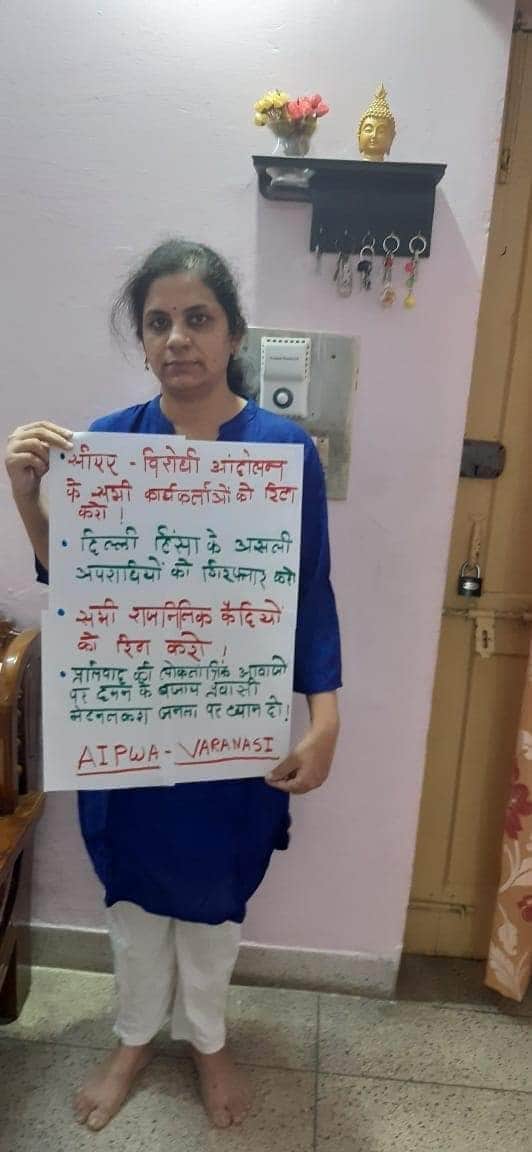 • सीएए - विरोधी आंदोलन
के सभी कार्यकर्ताओं को रिहा
करो !
• दिल्ली हिंसा के असली
अपराधियों को गिरफ्तार करो
• सभी राजनितिक कैदियों
को रिहा करो !
• प्रतिवाद की लोकतांत्रिक आवाजो
पर दमन के बजाय प्रवासी
मेहनतकश जनता पर ध्यान दो!
AIPWA - VARANASI